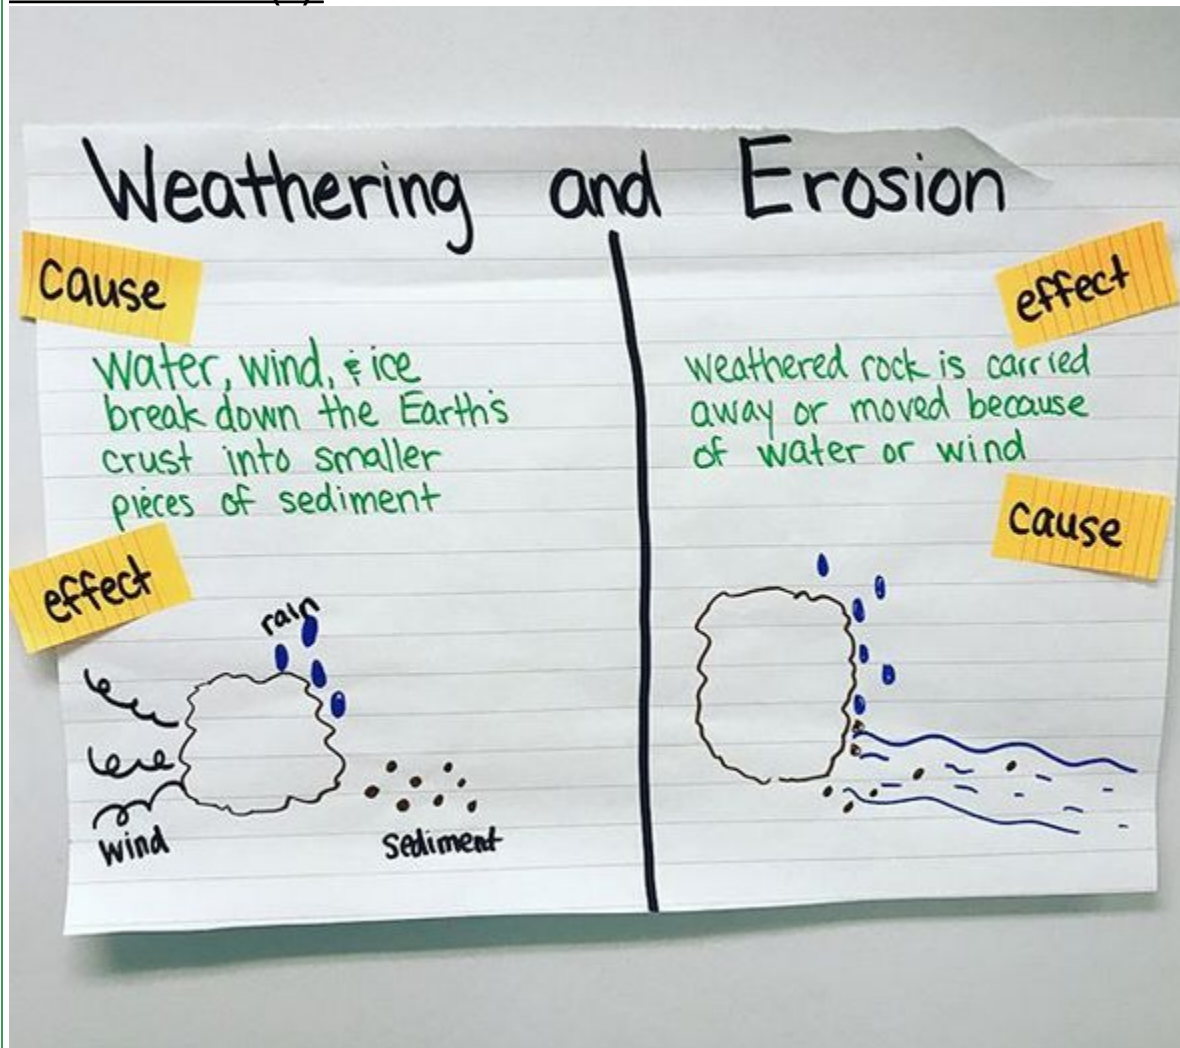 Weathering and Erosion
cause
water, wind, & ice
break down the Earth's
crust into smaller
pieces of sediment
effect
rain
wind
sediment
effect
weathered rock is carried
away or moved because
of water or wind
cause